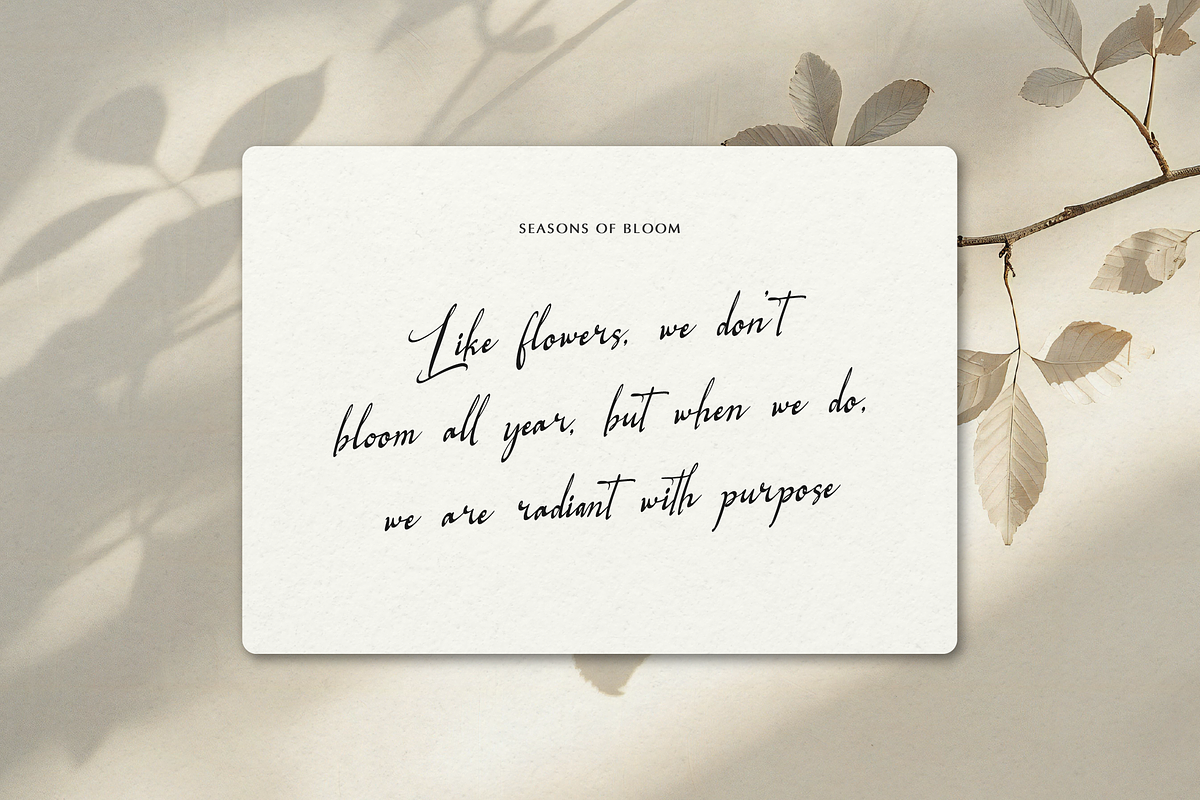 SEASONS OF BLOOM
Like flowers, we don't
bloom all year, but when we do,
we are radiant with purpose